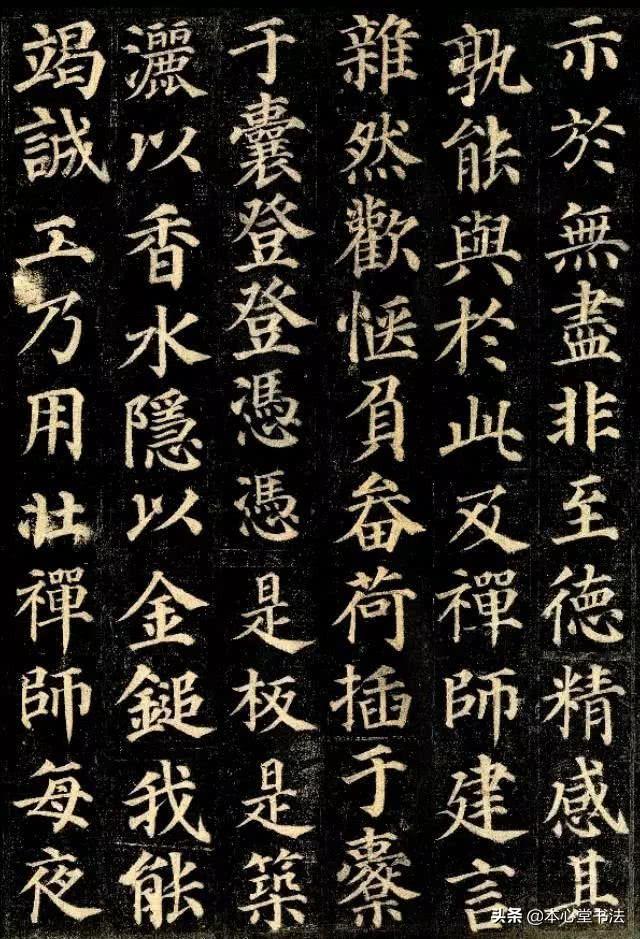 示於無盡非至德精感其
孰能與於此及禪師建言
雜然歡愜負畚荷插于橐
于囊登登憑憑是板是築
灑以香水隱以金鎚我能
竭誠工乃用壯禪師每夜
头条 @本心堂书法